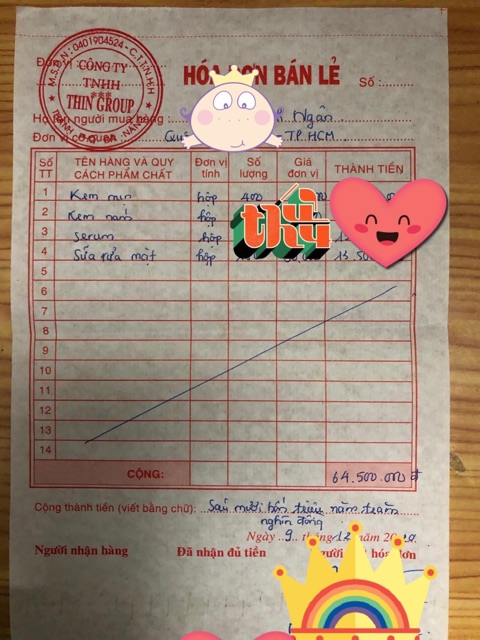 M.S.D.N: 0401904524 - C.T.T.N.H.H
CÔNG TY
TNHH
THIN GROUP
Đơn vị
HÓA ĐƠN BÁN LẺ
Số :
Họ tên người mua hàng : Ngân
Đơn vị cơ quan : TP HCM
Số TT TÊN HÀNG VÀ QUY CÁCH PHẨM CHẤT Đơn vị tính Số lượng Giá đơn vị THÀNH TIỀN
1 Kem mụn hộp 400
2 Kem nám hộp
3 Serum hộp
4 Sữa rửa mặt hộp 13.500
5
6
7
8
9
10
11
12
13
14
thú
CỘNG: 64.500.000 đ
Cộng thành tiền (viết bằng chữ): Sáu mươi bốn triệu năm trăm
nghìn đồng
Ngày 9 tháng 12 năm 20
Người nhận hàng Đã nhận đủ tiền hóa đơn